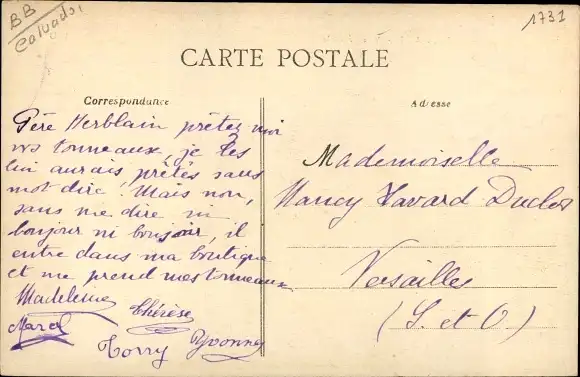 BB
Calvados
1731
CARTE POSTALE
Correspondance
Adresse
Père Herblain prêtez moi
vos tonneaux, je les
lui aurais prêtés sans
mot dire. Mais non,
sans me dire ni
bonjour ni bonsoir, il
entre dans ma boutique
et me prend mes tonneaux
Madeleine
Thérèse
Marcel
Torry Yvonne
Mademoiselle
Nancy Havard Duclos
Versailles
(S. et O)